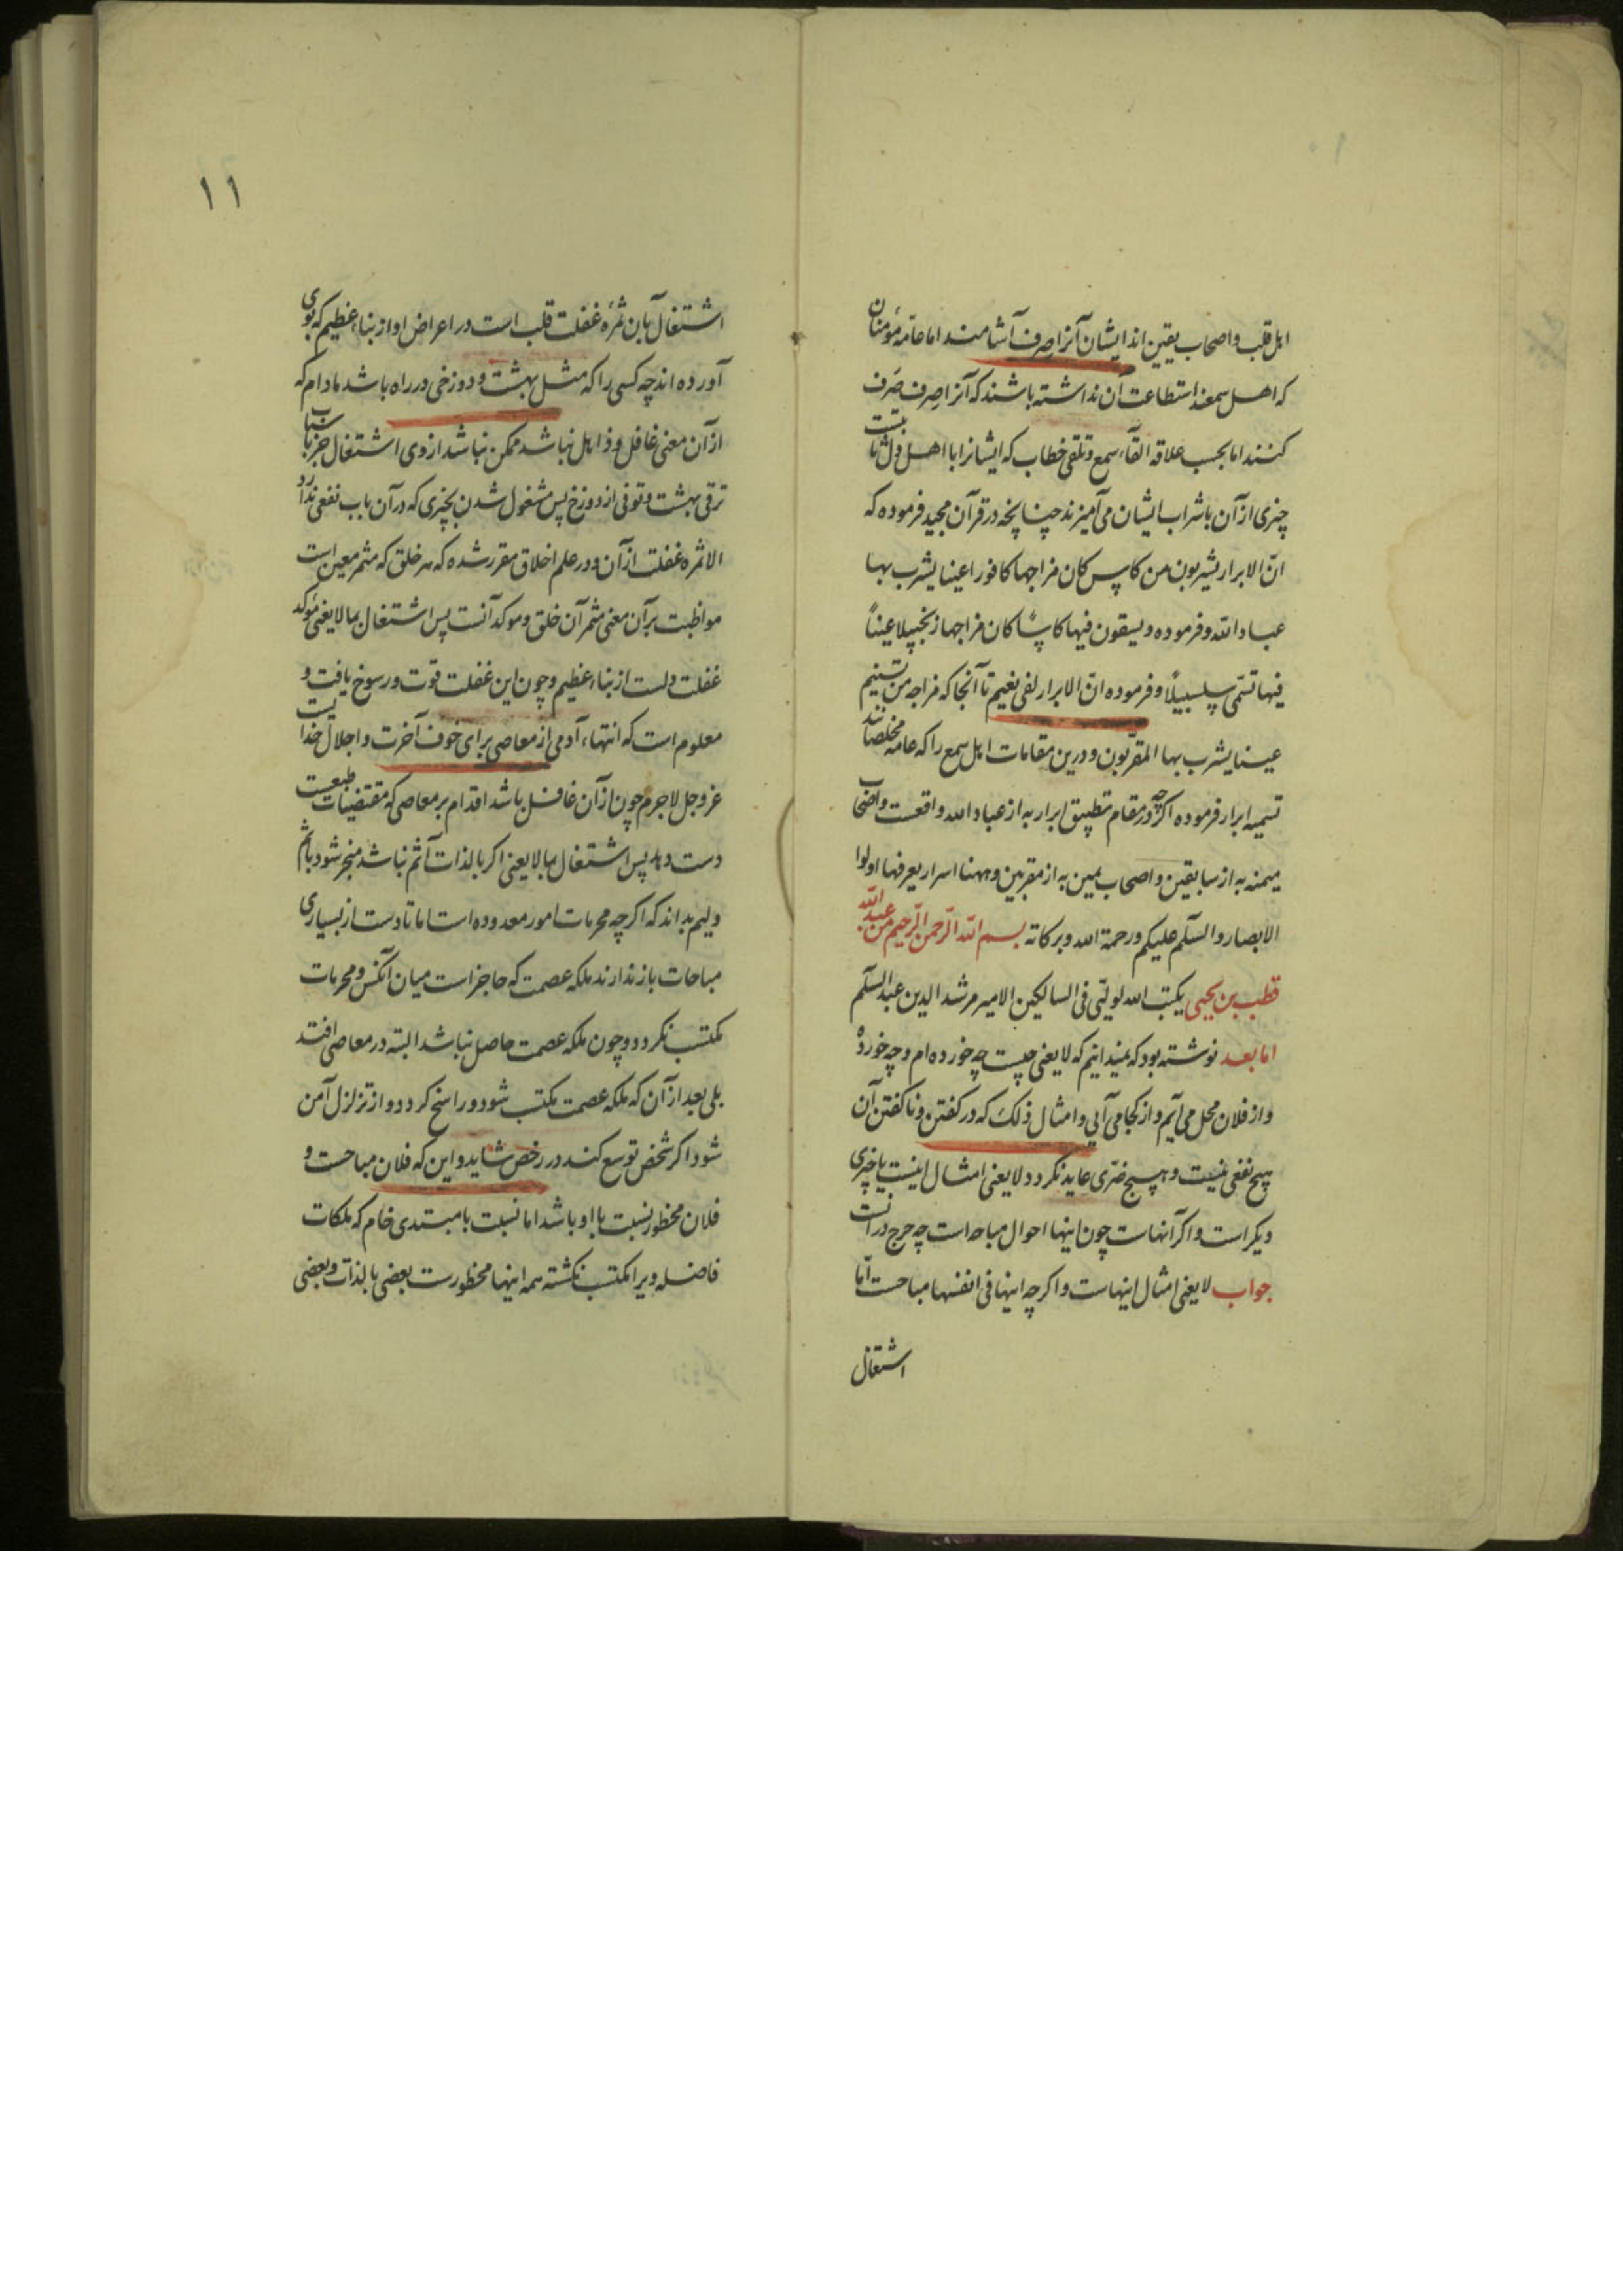 اهل قلب و اصحاب یقین‌اند ایشان آنرا صرف آشامند اما عامه مؤمنان
که اهل سمعند استطاعت آن نداشته باشند که آنرا صرف صرف
کنند اما بحسب علاقه القاء سمع و تلقی خطاب که ایشانرا با اهل دل ثابتست
چیزی از آن با شراب ایشان می‌آمیزند چنانچه در قرآن مجید فرموده که
انّ الابرار یشربون من کاس کان مزاجها کافورا عینا یشرب بها
عباد الله و فرموده و یسقون فیها کاسًا کان مزاجها زنجبیلا عیناً
فیها تسمّی سلسبیلًا و فرموده انّ الابرار لفی نعیم تا آنجا که مزاجه من تسنیم
عینا یشرب بها المقرّبون و درین مقامات اهل سمع را که عامه مخلصانند
تسمیه ابرار فرموده اگرچه در مقام تطبیق ابرار به از عباد الله واقعست و اصحاب
میمنه به از سابقین و اصحاب یمین به از مقربین و ههنا اسرار یعرفها اولوا
الابصار و السّلم علیکم و رحمة الله و برکاته بسم الله الرّحمن الرّحیم من عبد الله
قطب بن یحیی یکتب الله لولیّی فی السالکین الامیر مرشد الدین عبد السلم
اما بعد نوشته بود که نمیدانیم که لایعنی چیست چه خورده‌ام و چه خوردهٔ
و از فلان محل می‌آیم و از کجا می‌آیی و امثال ذلک که در گفتن و ناگفتن آن
هیچ نفعی نیست و هیچ ضرّی عاید نگردد لایعنی امثال اینست یا چیزی
دیگر است و اگر آنهاست چون اینها احوال مباحه است چه حرج در آنست
جواب لایعنی امثال اینهاست و اگرچه اینها فی انفسها مباحست امّا
اشتغال
۱۱
اشتغال بآن ثمرهٔ غفلت قلب است در اعراض او از نباء عظیم که بوی
آورده‌اند چه کسی را که مثل بهشت و دوزخی در راه باشد مادام که
از آن معنی غافل و ذاهل نباشد ممکن نباشد از وی اشتغال جز باسباب
ترقی بهشت و توقی از دوزخ پس مشغول شدن بچیزی که در آن باب نفعی ندارد
الا ثمره غفلت از آن و در علم اخلاق مقرر شده که هر خلق که مثمر معین است
مواظبت بر آن معنی مثمر آن خلق و موکد آنست پس اشتغال بما لایعنی مؤکد
غفلت دلست از نباء عظیم و چون این غفلت قوت و رسوخ یافت و
معلوم است که انتهاء آدمی از معاصی برای خوف آخرت و اجلال خدایست
عز و جل لاجرم چون از آن غافل باشد اقدام بر معاصی که مقتضیات طبعست
دست دهد پس اشتغال بما لایعنی اگر بالذات آثم نباشد منجر شود باثم
و لیم بداند که اگرچه محرمات امور معدوده است اما تا دست از بسیاری
مباحات باز ندارند ملکه عصمت که حاجز است میان آنکس و محرمات
مکتسب نگردد و چون ملکه عصمت حاصل نباشد البته در معاصی افتد
بلی بعد از آن که ملکه عصمت مکتسب شود و راسخ گردد و از تزلزل آمن
شود اگر شخص توسع کند در رخص شاید و این که فلان مباحست و
فلان محظور نسبت با او باشد اما نسبت با مبتدی خام که ملکات
فاضله ویرا مکتسب نگشته همه اینها محظورست بعضی بالذات و بعضی